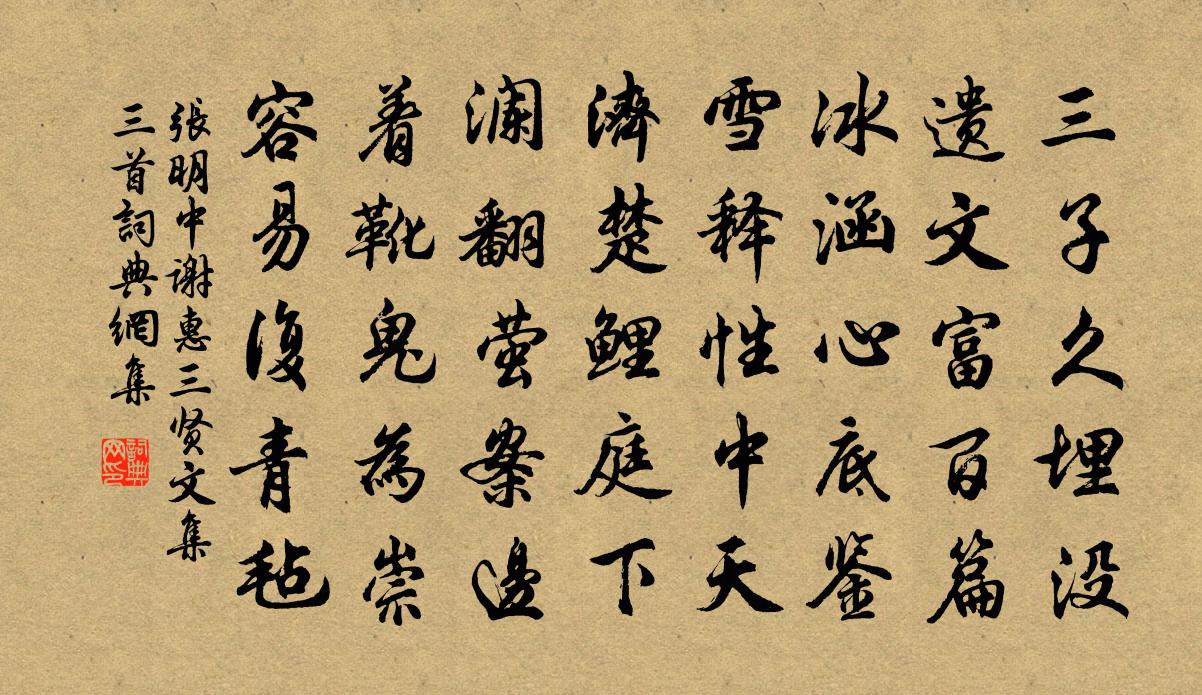 三子久埋没
遗文富百篇
冰涵心底鉴
雪释性中天
濟楚鲤庭下
澜翻萤案邊
着靴鬼為崇
容易復青毡
張明中谢惠三贤文集
三首詞典網集
詞典网印